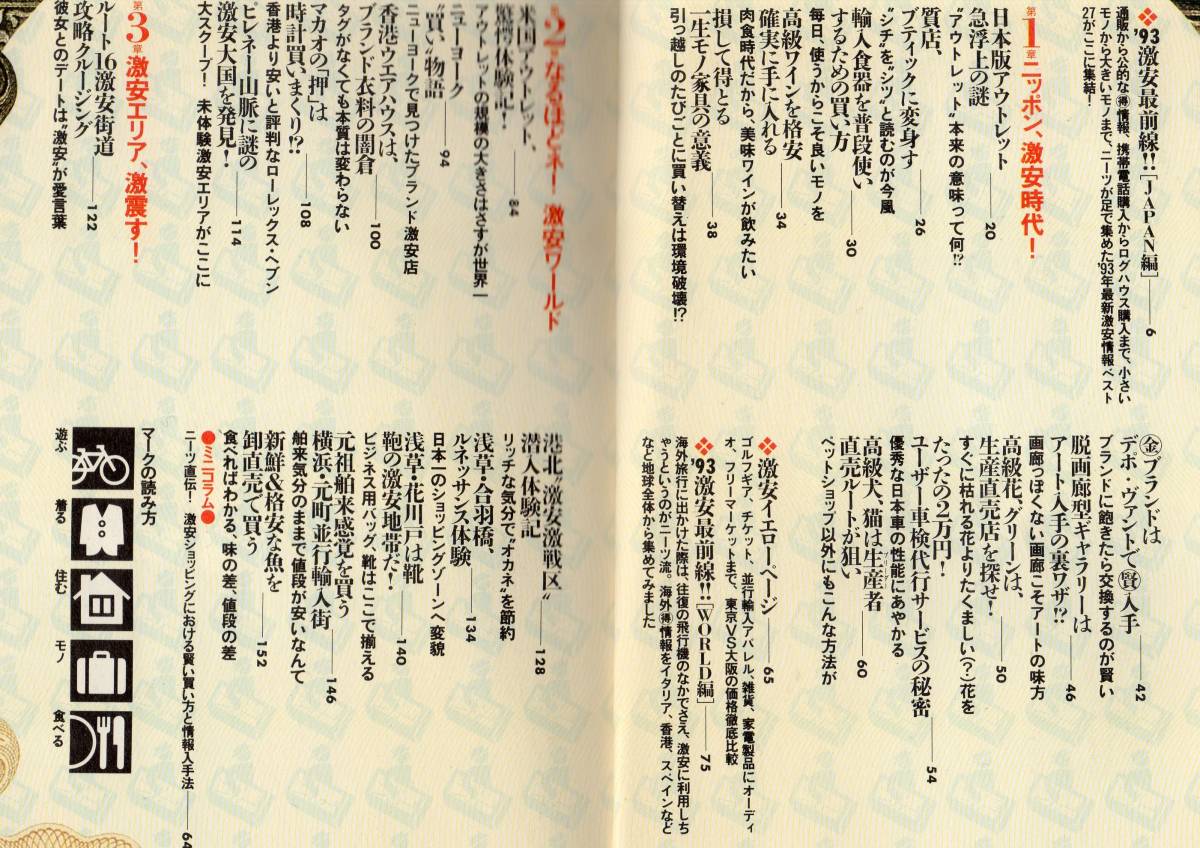 ❖'93激安最前線!![JAPAN編]——6
通販から公的な㊝情報、携帯電話購入からログハウス購入まで、小さい
モノから大きいモノまで、ニーツが足で集めた'93年最新激安情報ベスト
27がここに集結!
第1章 ニッポン、激安時代!
日本版アウトレット
急浮上の謎——20
“アウトレット”本来の意味って何!?
質店、
ブティックに変身す——26
“シチ”を“シツ”と読むのが今風
輸入食器を普段使い
するための買い方——30
毎日、使うからこそ良いモノを
高級ワインを格安
確実に手に入れる——34
肉食時代だから、美味ワインが飲みたい
損して得とる
一生モノ家具の意義——38
引っ越しのたびごとに買い替えは環境破壊!?
㊎ブランドは
デポ・ヴァントで賢入手——42
ブランドに飽きたら交換するのが賢い
脱画廊型ギャラリーは
アート入手の裏ワザ!?——46
画廊っぽくない画廊こそアートの味方
高級花、グリーンは、
生産直売店を探せ!——50
すぐに枯れる花よりたくましい(?)花を
たったの2万円!
ユーザー車検代行サービスの秘密——54
優秀な日本車の性能にあやかる
高級犬、猫は生産者
直売ルートが狙い——60
ペットショップ以外にもこんな方法が
❖激安イエローページ——65
ゴルフギア、チケット、並行輸入アパレル、雑貨、家電製品にオーディ
オ、フリーマーケットまで、東京VS大阪の価格徹底比較
❖'93激安最前線!![WORLD編]——75
海外旅行に出かけた際は、往復の飛行機のなかでさえ、激安に利用しち
ゃうというのがニーツ流。海外得情報をイタリア、香港、スペインなど
など地球全体から集めてみました
第2章 なるほどネ! 激安ワールド
米国アウトレット、
驚愕体験記!——84
アウトレットの規模の大きさはさすが世界一
ニューヨーク
“買い”物語——94
ニューヨークで見つけたブランド激安店
香港ウエアハウスは、
ブランド衣料の闇倉——100
タグがなくても本質は変わらない
マカオの「押」は
時計買いまくり!?——108
香港より安いと評判なローレックス・ヘブン
ピレネー山脈に謎の
激安大国を発見!——114
大スクープ! 未体験激安エリアがここに
第3章 激安エリア、激震す!
ルート16激安街道
攻略クルージング——122
彼女とのデートは“激安”が愛言葉
港北“激安激戦区”
潜入体験記——128
リッチな気分で“オカネ”を節約
浅草・合羽橋、
ルネッサンス体験——134
日本一のショッピングゾーンへ変貌
浅草・花川戸は靴
鞄の激安地帯だ!——140
ビジネス用バッグ、靴はここで揃える
元祖舶来感覚を買う
横浜・元町並行輸入街——146
舶来気分のままで値段が安いなんて
新鮮&格安な魚を
卸直売で買う——152
食べればわかる、味の差、値段の差
●ミニコラム●
ニーツ直伝! 激安ショッピングにおける賢い買い方と情報入手法——64
マークの読み方
遊ぶ
着る
住む
モノ
食べる